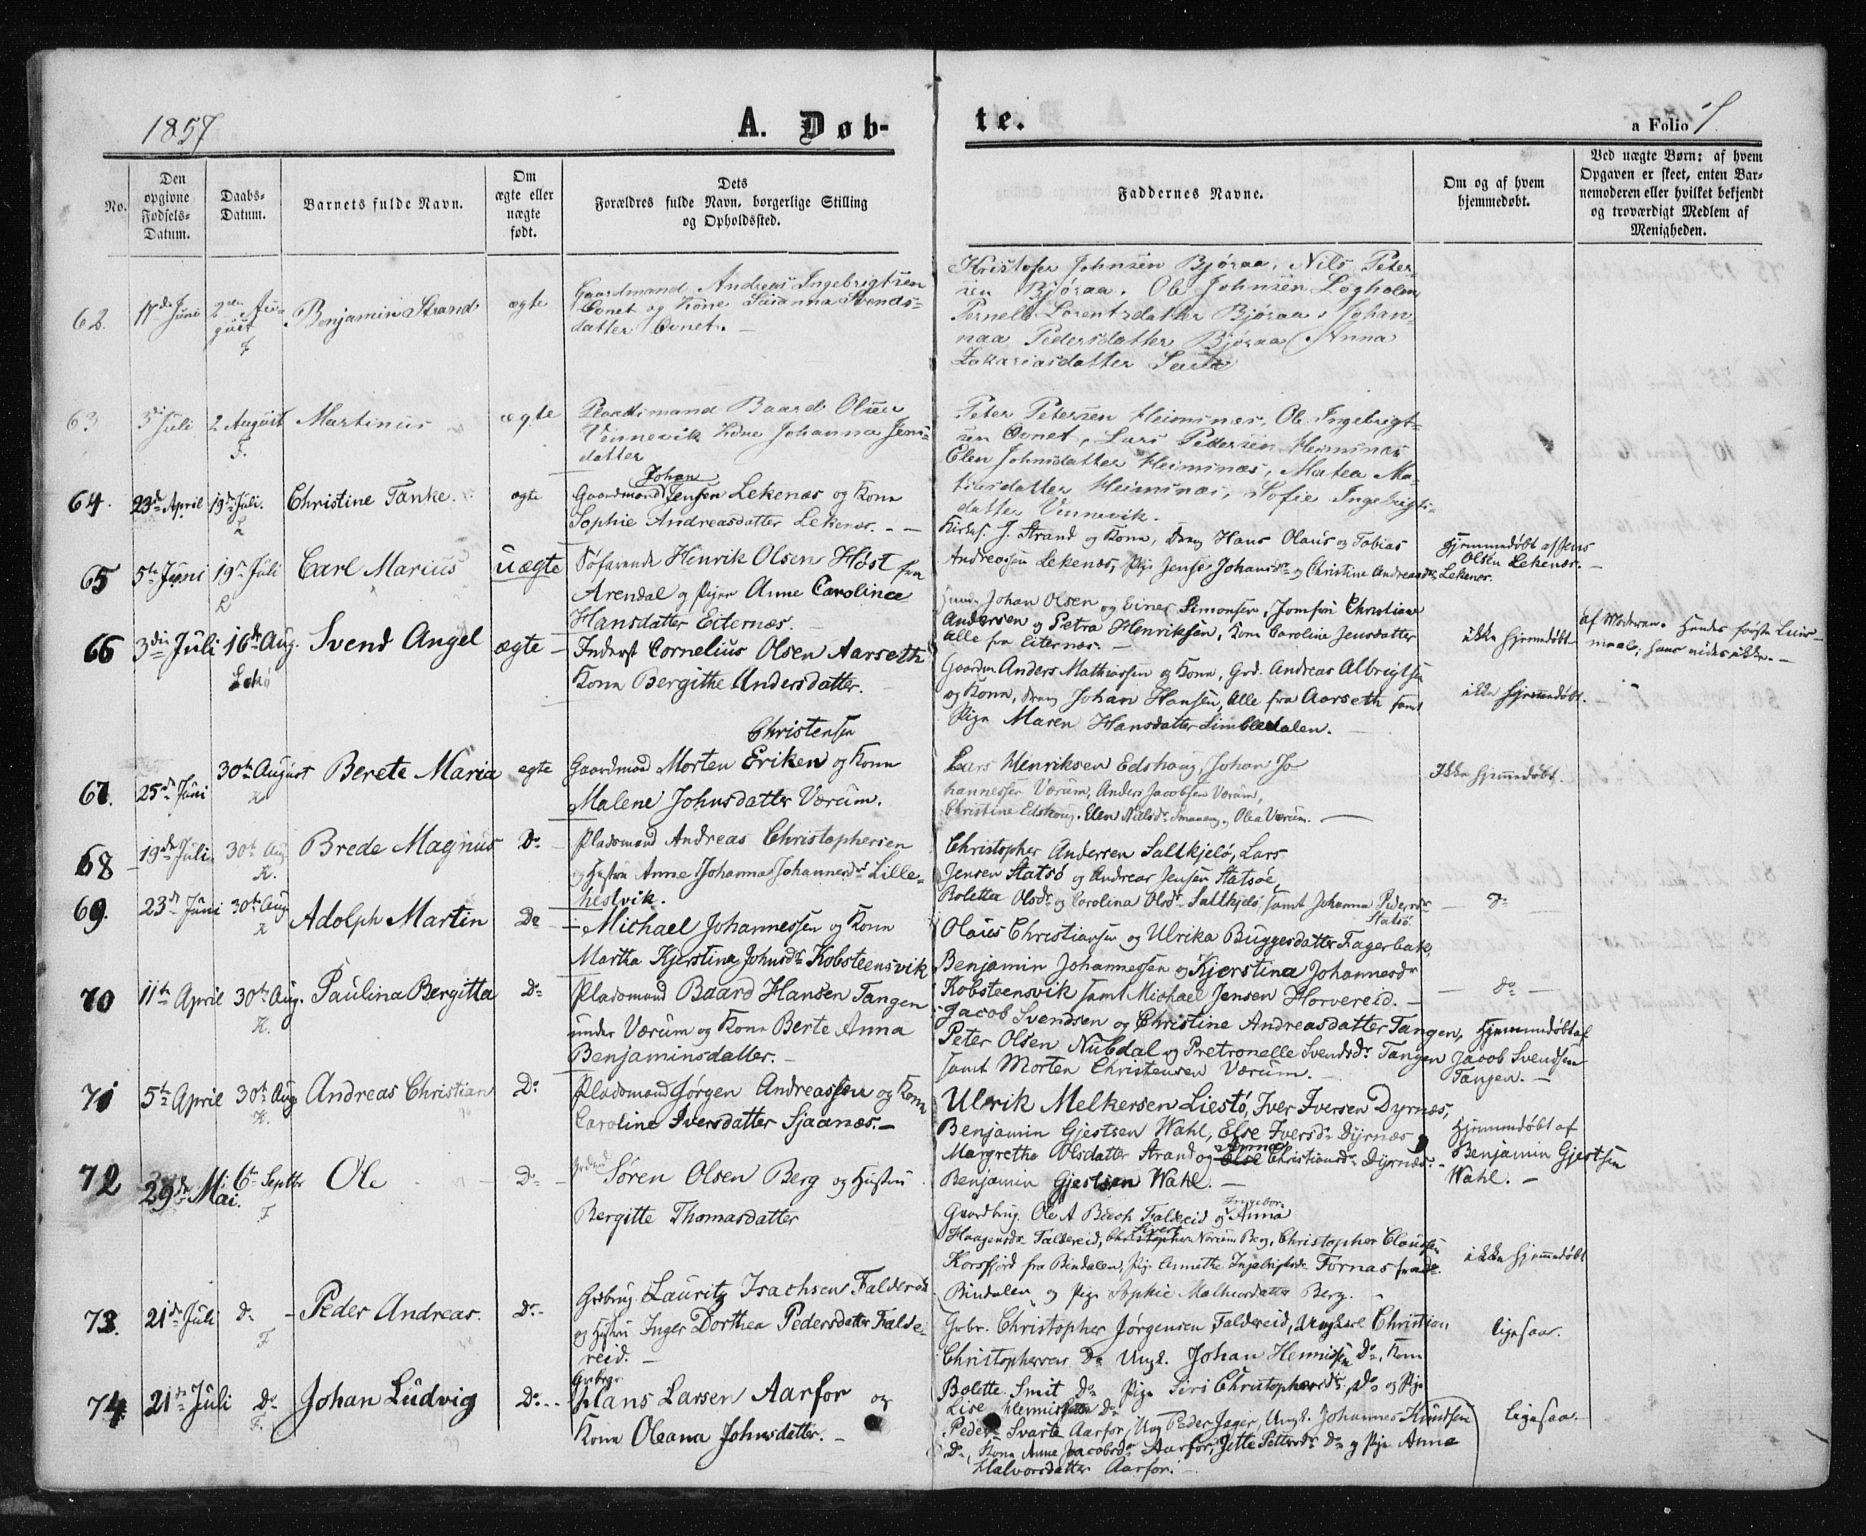 1857
A. Døb-
te.
a Folio 7.
No.
Den opgivne Fødsels-Datum.
Daabs-Datum.
Barnets fulde Navn.
Om ægte eller uægte født.
Dets Forældres fulde Navn, borgerlige Stilling og Opholdssted.
Faddernes Navne.
Om og af hvem hjemmedøbt.
Ved uægte Børn: af hvem Opgaven er skeet, enten Barnemoderen eller hvilket bekjendt og troværdigt Medlem af Menigheden.
62. 17de Juni 2den August F Benjamin Strand ægte
Gaardmand Andreas Ingebrigtsen
Qvnet og Kone Susanna Svends-
datter Qvnet. —
Kristofer Johnsen Bjøraa, Nils Peter-
sen Bjøraa. Ole Johnsen Løgholm
Pernelle Lorentzdatter Bjøraa, Johan-
naa Pedersdatter Bjøraa, Anna
Zakariasdatter
63 3di Juli 2 August F. Martinus ægte
Pladsmand Baard Olsen
Vennevik Kone Johanna Jens-
datter
Peter Petersen Heimsnæs, Ole Ingebrigt-
sen Qvnet, Lars Pettersen Heimsnæs
Elen Johnsdatter Heimsnæs, Matea Ma-
tisdatter Heimsnæs, Sofie Ingebrigts-
datter Vennevik.
64. 23de April 19de Juli. L Christine Tanke. ægte
Johan
Gaardmand Jensen Lekenæs og Kona
Sophie Andreasdatter Lekenæs. —
Kirkes. J. Strand og Kone, Dreng Hans Olaus og Tobias
Andreassen Lekenæs, Pige Jense Johansdr og Christine Andreasdr Lekenæs.
Hjemmedøbt af Jens
Olsen Lekenæs. —
65 5te Juni 19de Juli L Carl Marius uægte
Søfarende Henrik Olsen Høst fra
Arendal og Pigen Anne Carolina
Hansdatter Eiternæs. —
Johan Olsen og Einer Simonsen, Jomfru Christine
Andersen og Petra Henriksen, Kone Caroline Jensdatter
Alle fra Eiternæs. —
ikke hjemmedøbt
af Moderen. Hendes første Leier-
maal; hans vides ikke. —
66 3die Juli 16de Aug. Lekø Svend Angel ægte —
Inderst Cornelius Olsen Aarseth
Kona Bergithe Andersdatter. —
Gaardm Anders Mathiassen og Kona, Grd. Andreas Albregtsen
og Kona, Dreng Johan Hansen, Alle fra Aarseth samt
Pige Maren Hansdatter Simbledalen. —
ikke hjemmedøbt.
67. 25de Juni 30te August K Berete Maria egte
Christensen
Gaardmand Morten Eriken og Kona
Malene Johnsdatter Værum.
Lars Henriksen Edshaug, Johan Jo-
hannessen Værum, Anders Jacobsen Værum,
Christine Edshaug. Elen Nielsdr og Olea Værum. —
Ikke hjemmedøbt.
68 19de Juli 30te Aug. K. Brede Magnus Do —
Pladsmand Andreas Christophersen
og Hustru Anne Johanna Johannesdr Lille-
hestvik.
Christopher Andersen Saltkjelø, Lars
Jensen Statsø og Andreas Jensen Statsøe,
Boletta Olsdr og Carolina Olsdr Saltkjelø, samt Johanna Pedersdr
Statsø.
— Do —
69. 23de Juni 30te Aug K Adolph Martin Do —
Michael Johannessen og Kona
Martha Kjerstina Johnsdr Kobsteensvik
Olaus Christiansen og Ulrika Buggesdatter Fagerbak,
Benjamin Johannessen og Kjerstina Johannesdr
Kobsteensvik samt Michael Jensen Horvereid. —
— Do —
70 11te April 30te Aug. K. Paulina Bergitta Do
Pladsmand Baard Hansen Tangen
under Værum og Kone Berte Anna
Benjaminsdatter. —
Jacob Svendsen og Christine Andreasdatter Tangen,
Peter Olsen Nubdal og Pretronelle Svendsdr Tangen
samt Morten Christensen Værum. —
Hjemmedøbt af
Jacob Svendsen
Tangen. —
71 5te April 30te Aug K. Andreas Christian Do
Pladsmand Jørgen Andreassen og Kone
Caroline Iversdatter Sjaanæs. —
Ulrik Melkersen Liestø, Iver Iversen Dyrnæs,
Benjamin Gjestsen Wahl, Else Iversdr Dyrnæs
Anne
Margrethe Olsdatter Strand og Else Christiansdr Dyrnæs.
Benjamin Gjestsen Wahl. —
Hjemmedøbt af
Benjamin Gjertsen
Wahl. —
72 29de Mai. 6te Septbr F Ole Do —
Søren Olsen Berg og Hustru
Bergitte Thomasdatter
Ingebor
Gaardbrug. Ole A Bach Faldereid og Anna
Haagensdr Faldereid, Norum Berg, Christopher Clausen
Korsfjord fra Bindalen, Pige Annethe Ingebrigtsdr Fornæs fra do.
Bindalen og Pige Sophie Melkiordatter Berg. —
ikke hjemmedøbt
73. 21de Juli do — F Peder Andreas. Do —
Grdbrug. Lauritz Isachsen Faldereid
og Hustru Inger Dorthea Pedersdatter Falde-
reid. —
Grbr. Christopher Jørgensen Faldereid, Ungkarl Christian
Christophersen Do Ungk. Johan Hemmissen Do, Kone
Bolette Smit Do Pige Siri Christophersdr, Do og Pige
Lise Do
ligesaa.
74 21de Juli Do F. Johan Ludvig Do —
Grdbrgr
Hans Larsen Aarfor og
Kone Oleana Johnsdatter. —
Peder Svarte Aarfor, Ung Peder Jager, Ungk. Johannes Knudsen
Do, Kone Anne Jacobsdr Aarfor, Jette Pettersdr Do og Pige Anne
Halvorsdatter Aarfor. —
ligesaa. —